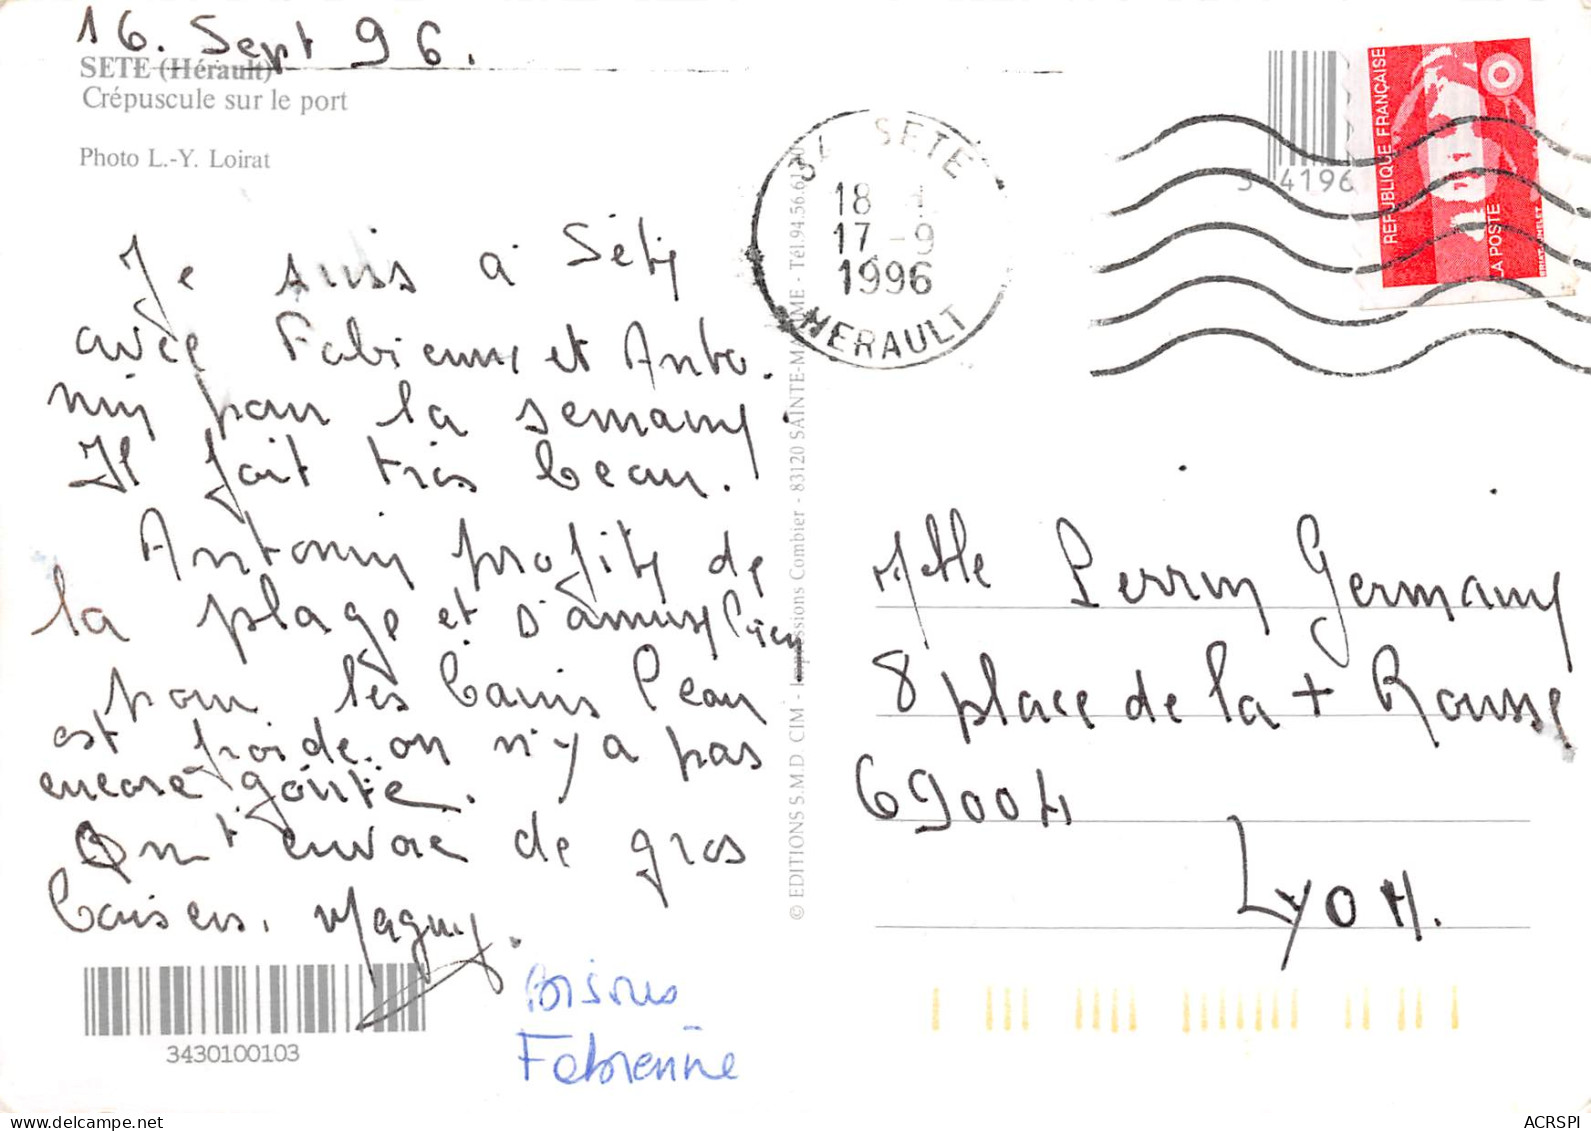 16. Sept 96.
SETE (Hérault)
Crépuscule sur le port
Photo L.-Y. Loirat
Je suis à Sète
avec Fabienne et Anto.
nin pour la semaine.
Il fait très beau.
Antonin profite de
la plage et s'amuse bien
pour les bains l'eau
est froide. on n'y a pas
encore goûté.
On t'envoie de gros
baisers. Maguy.
Bisous
Fabienne
3430100103
© EDITIONS S.M.D. CIM - Impressions Combier - 83120 SAINTE-MAXIME - Tél.94.56.61
34 SETE
18 H
17 -9
1996
HERAULT
3 4196
REPUBLIQUE FRANÇAISE
LA POSTE
Melle Perrin Germaine
8 place de la + Rousse
69004
Lyon.
www.delcampe.net
ACRSPI